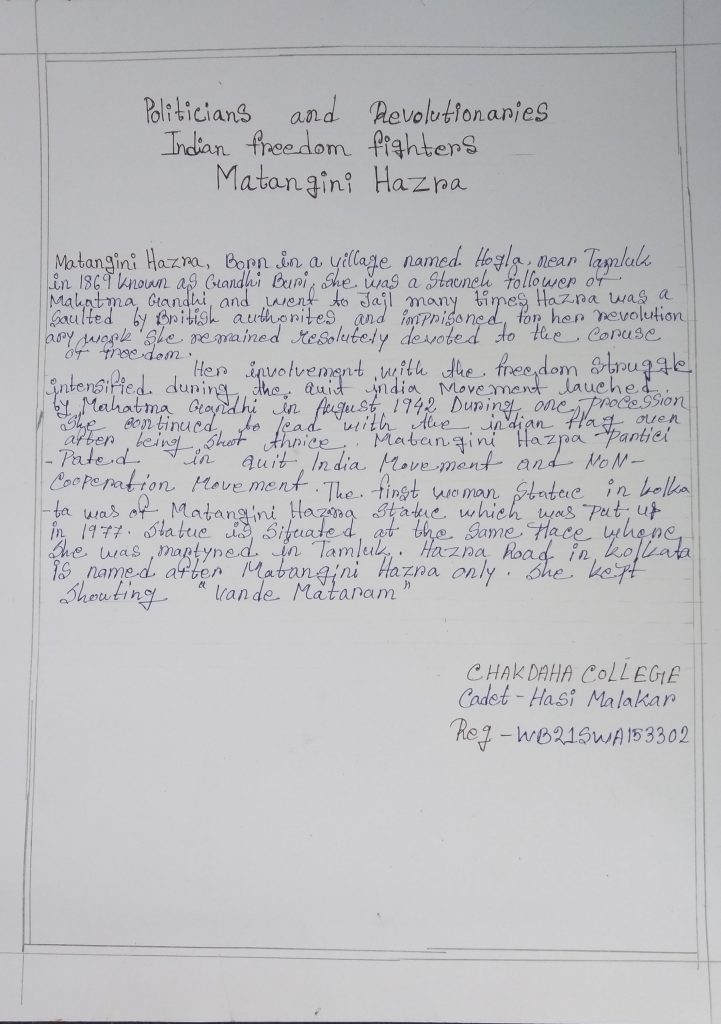 Politicians and Revolutionaries
Indian freedom fighters
Matangini Hazra
Matangini Hazra, Born in a village named Hogla, near Tamluk
in 1869 known as Gandhi Buri, She was a Staunch follower of
Mahatma Gandhi, and went to Jail many times Hazra was a
saulted by British authorites and imprisoned for her revolution
ary work She remained resolutely devoted to the coruse
of freedom.
Her involvement with the freedom Struggle
intensified during the Quit india Movement lauched
by Mahatma Gandhi in August 1942 During one procession
She continued to lead with the indian flag even
after being shot thrice. Matangini Hazra Partici
-Pated in Quit India Movement and NoN-
Cooperation Movement. The first woman Statue in kolka
-ta was of Matangini Hazra Statue which was put up
in 1977. Statue is Situated at the Same Place where
She was martyred in Tamluk. Hazra Road in kolkata
is named after Matangini Hazra only. She kept
Shouting "Vande Mataram"
CHAKDAHA COLLEGE
Cadet - Hasi Malakar
Reg - WB21SWA153302